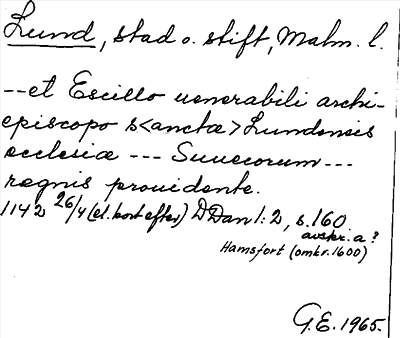 Lund, stad o. stift, Malm. l.
--et Escillo uenerabili archi-
episcopo s<anctæ> Lundensis
ecclesiæ --- Suuecorum---
regnis prouidente.
1142 26/4 (el. kort efter) DDan 1:2, s. 160
avskr. a?
Hamsfort (omkr. 1600)
G.E. 1965.